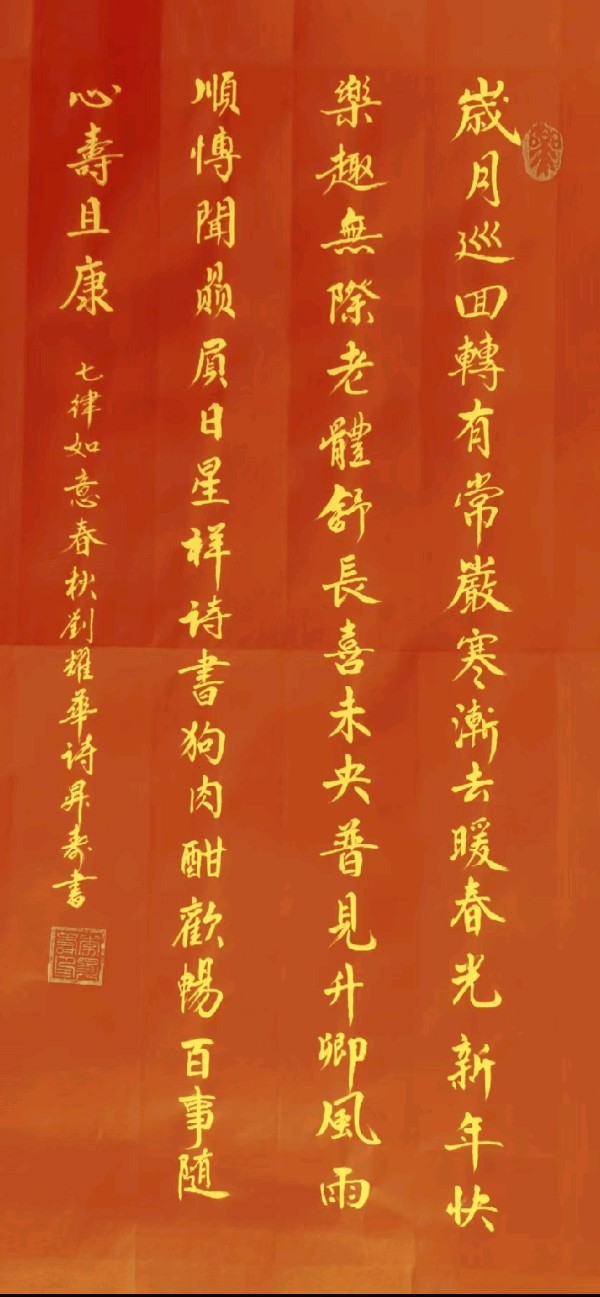 歲月巡回轉有常嚴寒漸去暖春光新年快
樂趣無際老體舒長喜未央普見升卿風雨
順博聞員日星祥诗書狗肉酣歡暢百事随
心壽且康
七律如意春秋劉耀華诗昇寿書